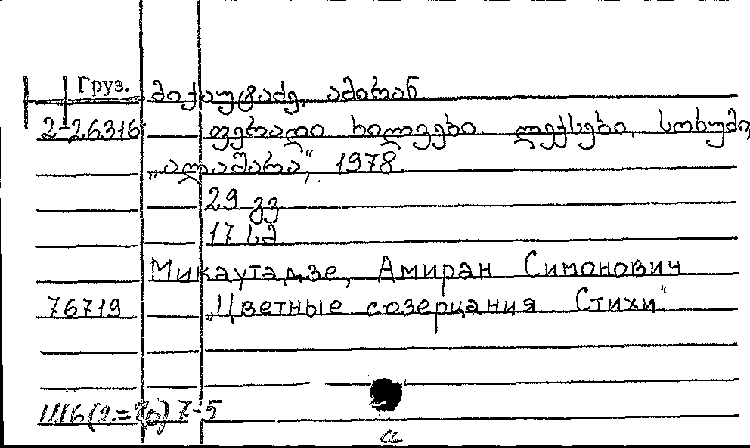 Груз. მიქაუტაძე, ამირან
2-26316 ფერადი ხილვები. ლექსები, სოხუმი
„ალაშარა“, 1978.
29 გვ
17 სმ
Микаутадзе, Амиран Симонович
76719 „Цветные созерцания Стихи“
7-5